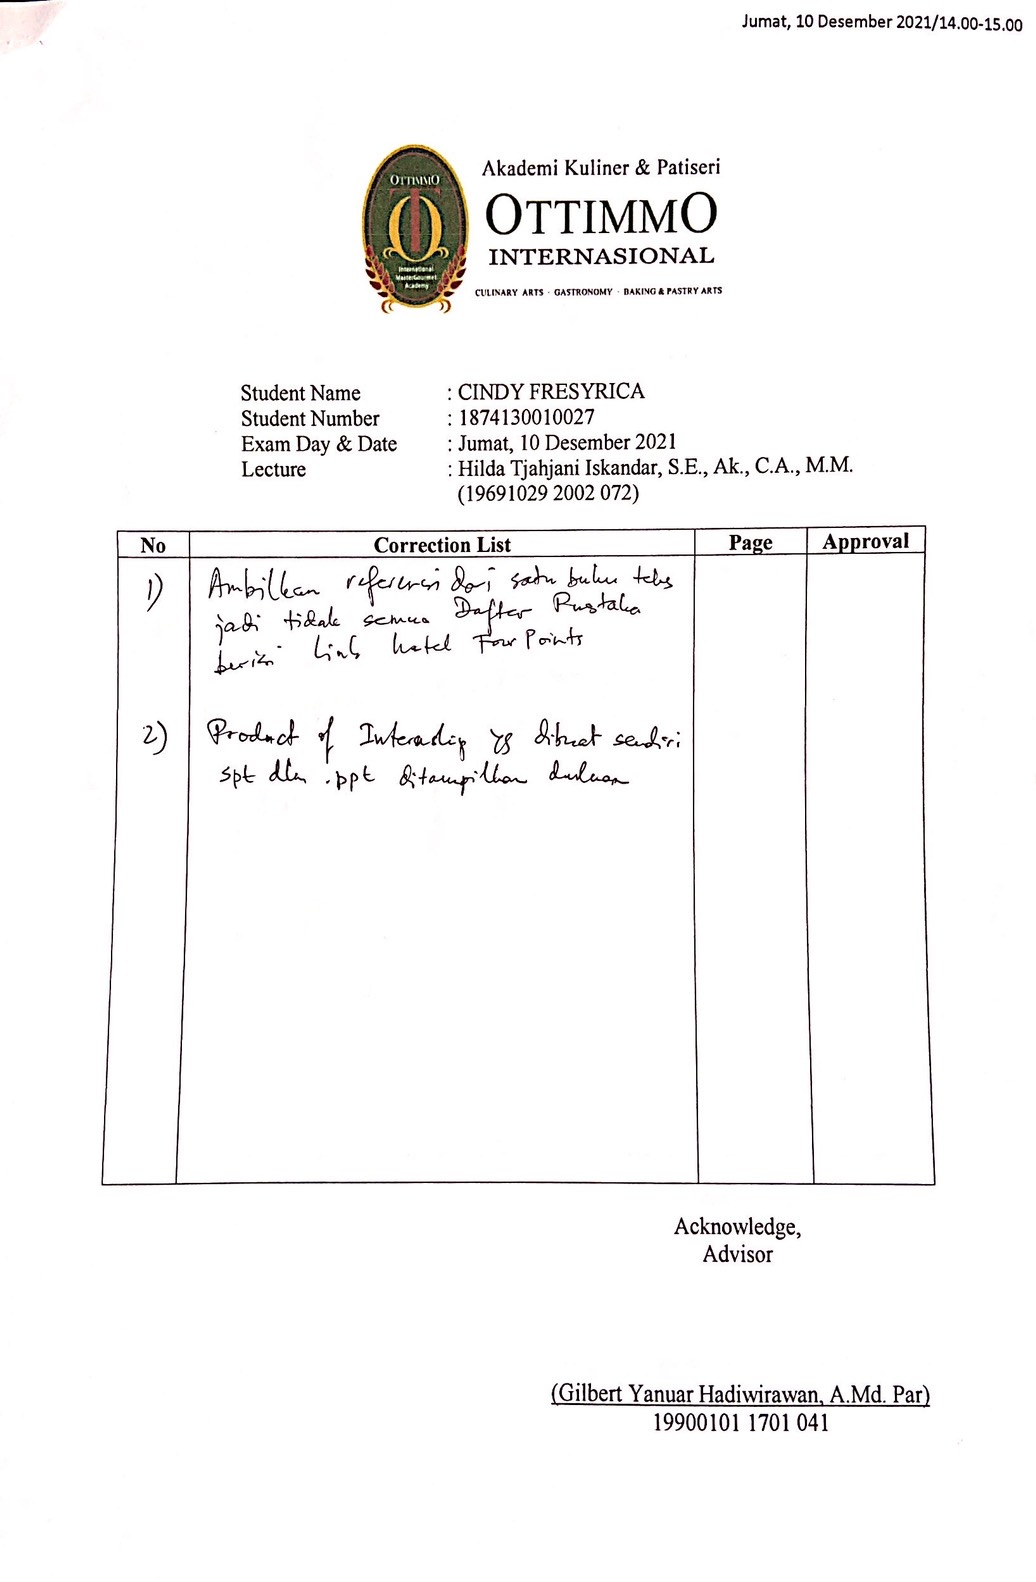 Jumat, 10 Desember 2021/14.00-15.00
OTTIMMO
International
MasterGourmet
Academy
Akademi Kuliner & Patiseri
OTTIMMO
INTERNASIONAL
CULINARY ARTS · GASTRONOMY · BAKING & PASTRY ARTS
Student Name : CINDY FRESYRICA
Student Number : 1874130010027
Exam Day & Date : Jumat, 10 Desember 2021
Lecture : Hilda Tjahjani Iskandar, S.E., Ak., C.A., M.M.
(19691029 2002 072)
No Correction List Page Approval
1) Ambilkan referensi dari satu buku teks
jadi tidak semua Daftar Pustaka
berisi link hotel Four Points
2) Product of Internship yg dibuat sendiri
spt dlm .ppt ditampilkan duluan
Acknowledge,
Advisor
(Gilbert Yanuar Hadiwirawan, A.Md. Par)
19900101 1701 041